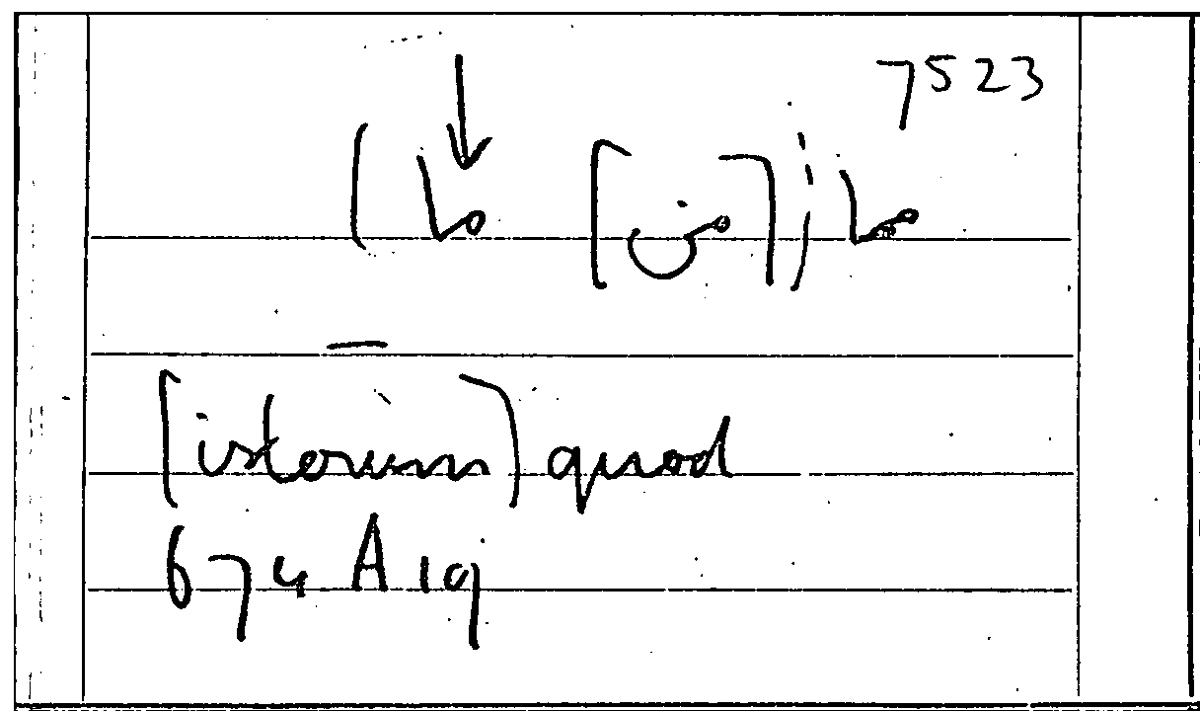 7523
ما ([من] ما)
[istorum] quod
674 A 19